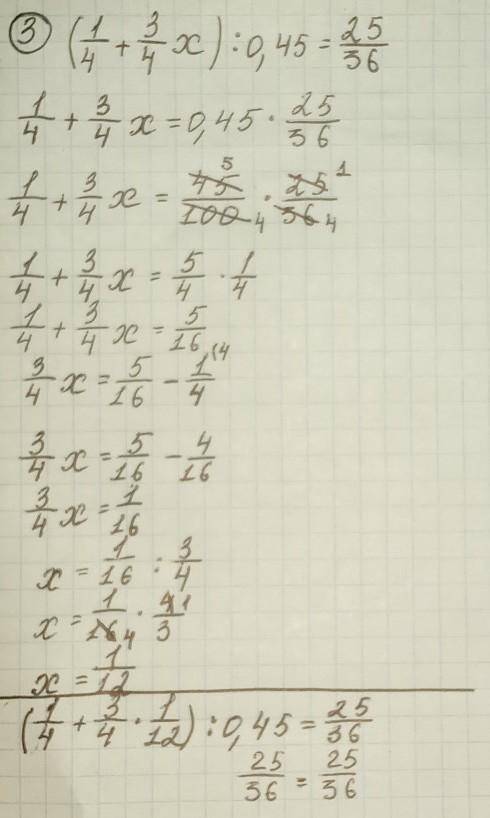 ③ (1/4 + 3/4 x) : 0,45 = 25/36
1/4 + 3/4 x = 0,45 · 25/36
1/4 + 3/4 x = 45 5/100 4 · 25 1/36 4
1/4 + 3/4 x = 5/4 · 1/4
1/4 + 3/4 x = 5/16
3/4 x = 5/16 - 1(4/4
3/4 x = 5/16 - 4/16
3/4 x = 1/16
x = 1/16 : 3/4
x = 1/16 4 · 4 1/3
x = 1/12
(1/4 + 3/4 · 1/12) : 0,45 = 25/36
25/36 = 25/36